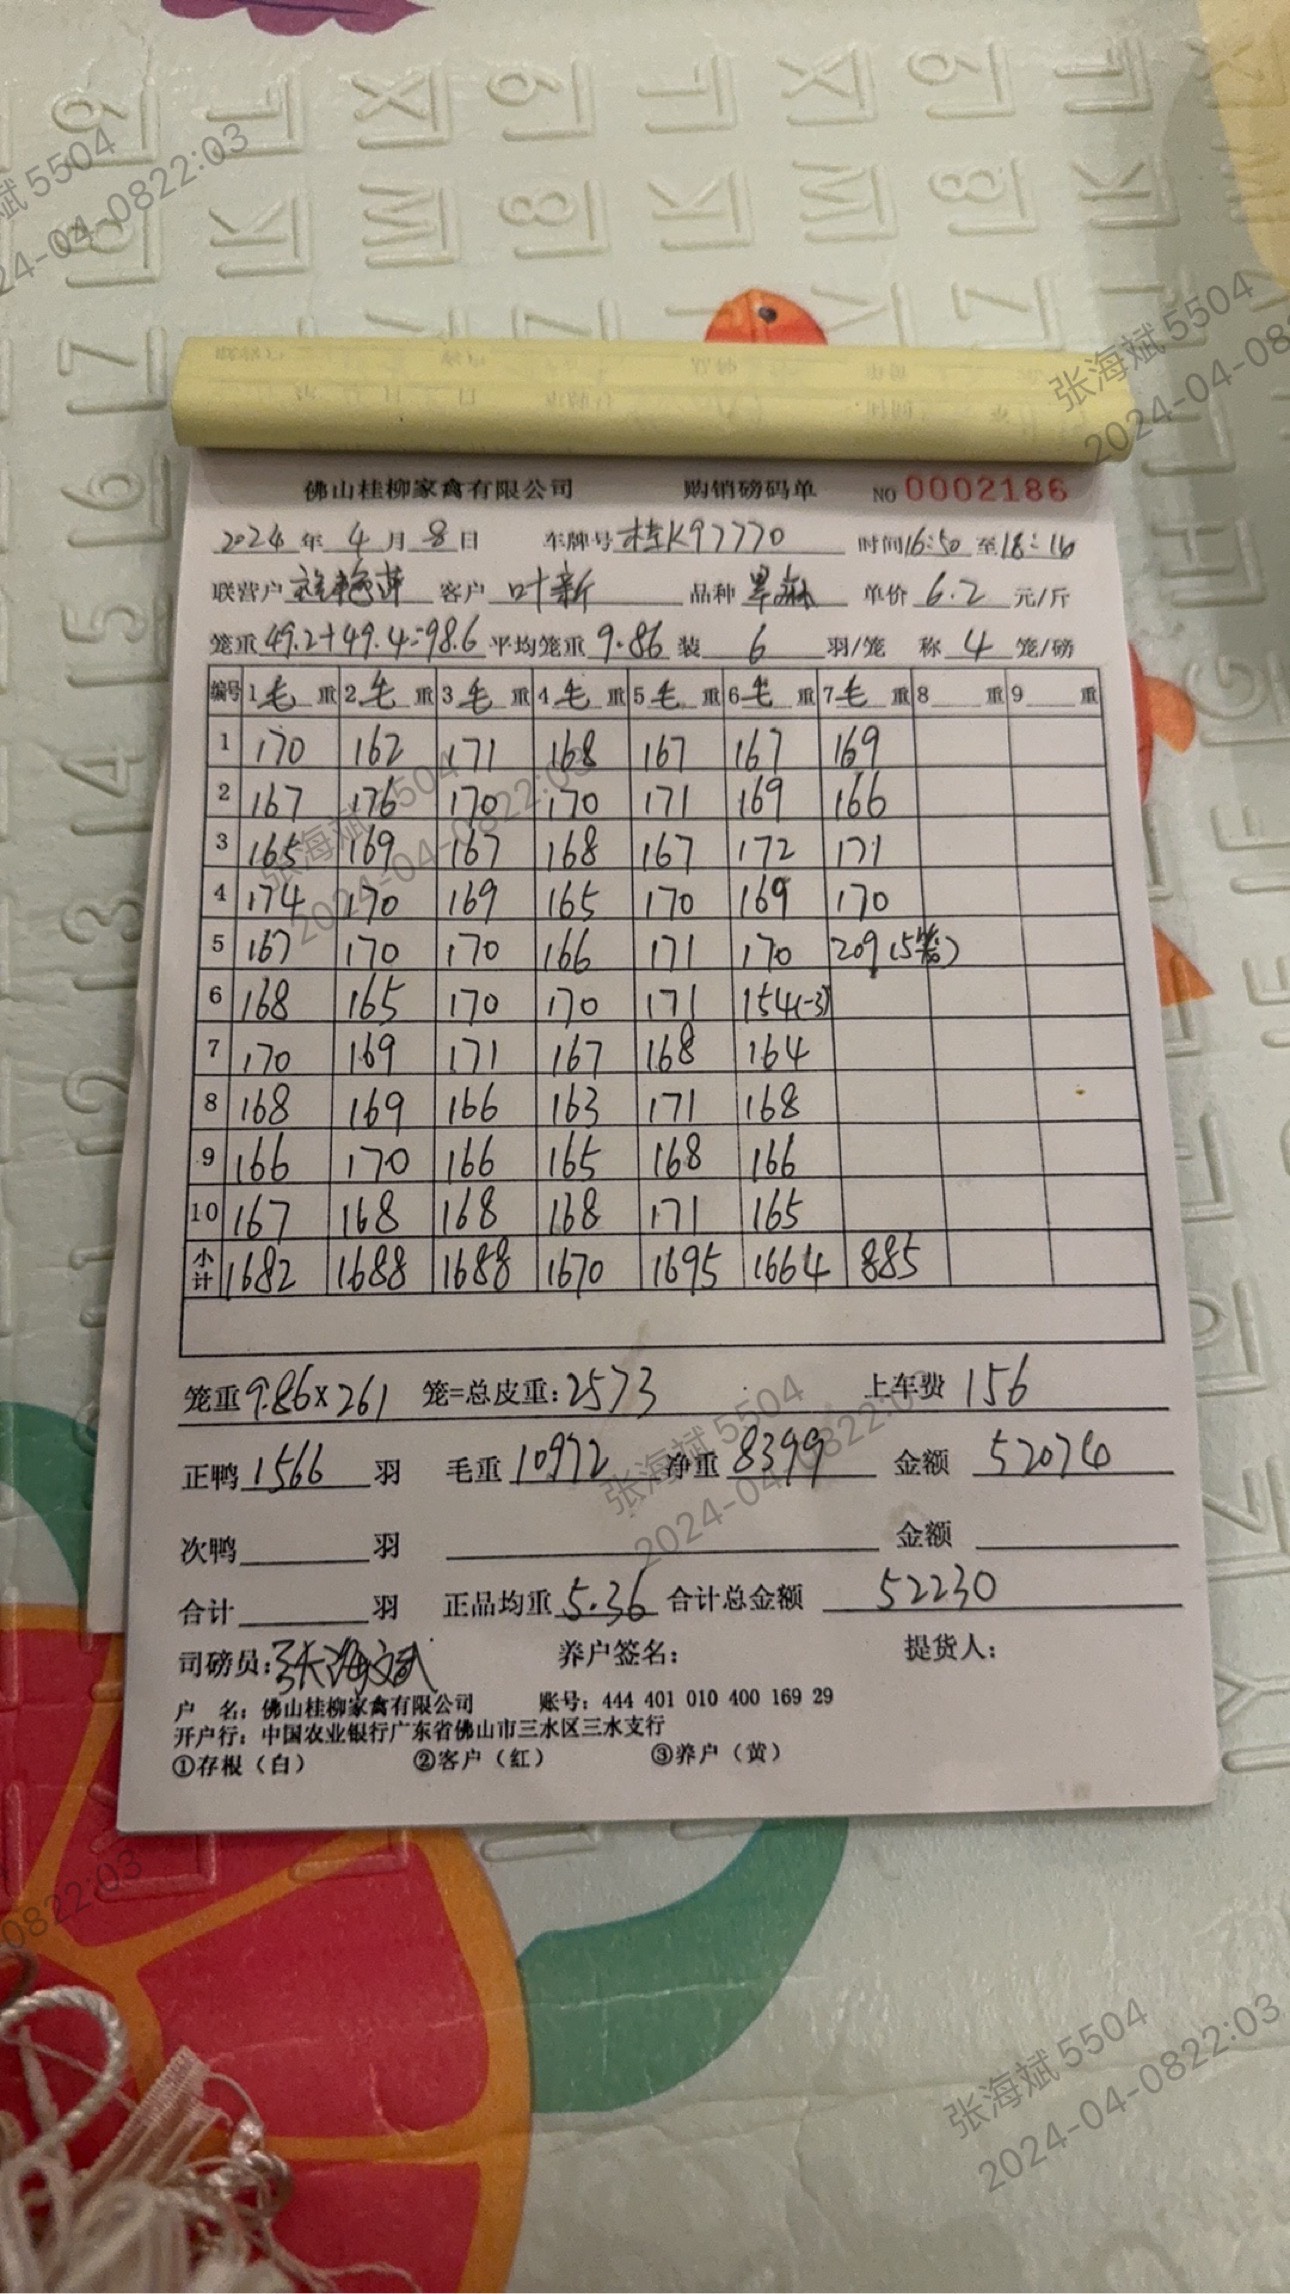 佛山桂柳家禽有限公司 购销磅码单 NO 0002186
2024年4月8日 车牌号桂K97770 时间16:50至18:16
联营户 客户叶新 品种 单价6.2元/斤
笼重49.2+49.4=98.6平均笼重9.86装6羽/笼 称4笼/磅
编号 1毛重 2毛重 3毛重 4毛重 5毛重 6毛重 7毛重 8 重 9 重
1 170 162 171 168 167 167 169
2 167 176 170 170 171 169 166
3 165 169 167 168 167 172 171
4 174 170 169 165 170 169 170
5 167 170 170 166 171 170 209(5笼)
6 168 165 170 170 171 154(-3)
7 170 169 171 167 168 164
8 168 169 166 163 171 168
9 166 170 166 165 168 166
10 167 168 168 168 171 165
小计 1682 1688 1688 1670 1695 1664 885
笼重9.86×261 笼=总皮重:2573 上车费156
正鸭1566羽 毛重10972 净重8399 金额52074
次鸭 羽 金额
合计 羽 正品均重5.36 合计总金额52230
司磅员:张海斌 养户签名: 提货人:
户 名:佛山桂柳家禽有限公司 账号:444 401 010 400 169 29
开户行:中国农业银行广东省佛山市三水区三水支行
①存根(白) ②客户(红) ③养户(黄)
张海斌 5504
2024-04-0822:03